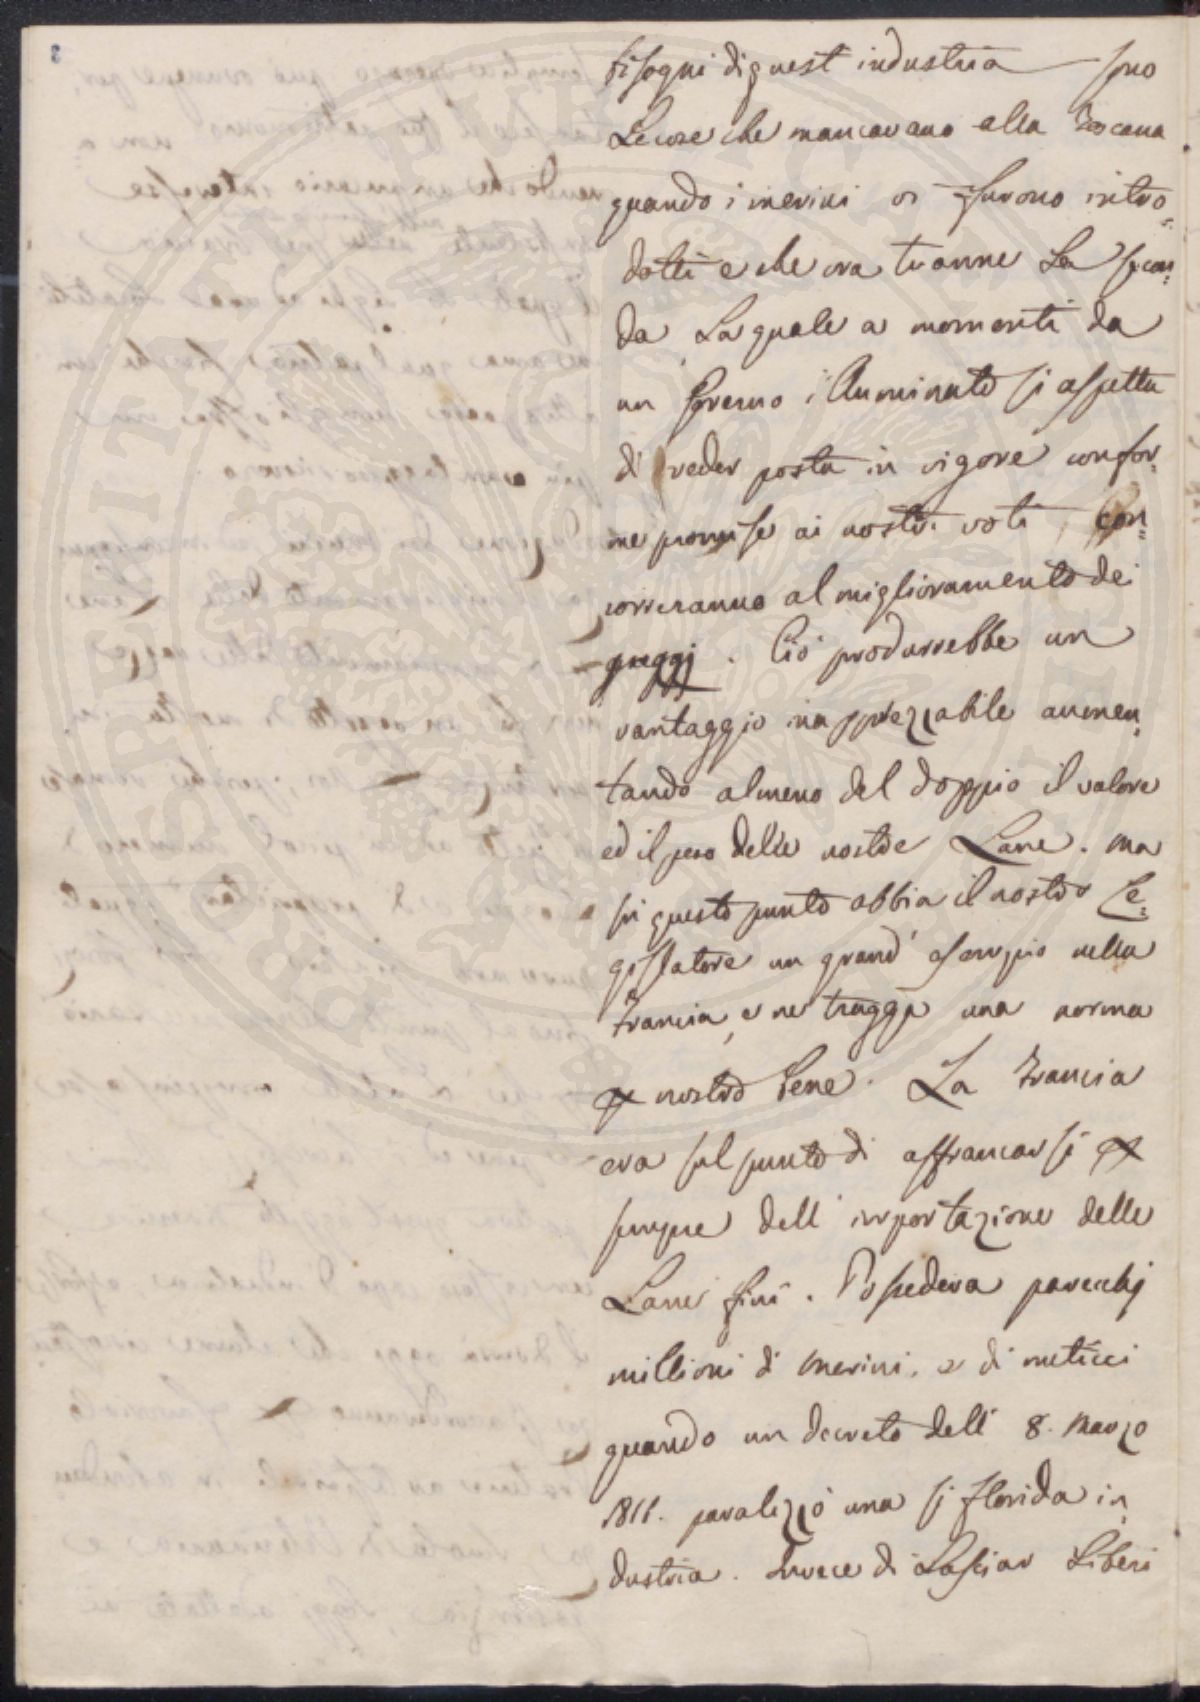 bisogni di quest industria sono
Le cose che mancavano alla Toscana
quando i merini vi furono intro=
dotti e che ora tranne La secon=
da La quale a momenti da
un Governo illuminato si aspetta
di veder posta in vigore confor=
me promise ai nostri voti, con=
correranno al miglioramento dei
greggj. Ciò produrrebbe un
vantaggio inapprezzabile aumen=
tando almeno del doppio il valore
ed il peso delle nostre Lane. Ma
su questo punto abbia il nostro Le=
gislatore un grand' esempio nella
Francia, e ne tragga una norma
p nostro bene. La Francia
era sul punto di affrancarsi p
sempre dell' importazione delle
Lane fini. Possedeva parecchj
millioni di merini, e di meticci
quando un decreto dell' 8. Marzo
1811. paralizzò una sì florida in=
dustria. Invece di Lasciar Liberi
PROSPERITATI PUBLICAE